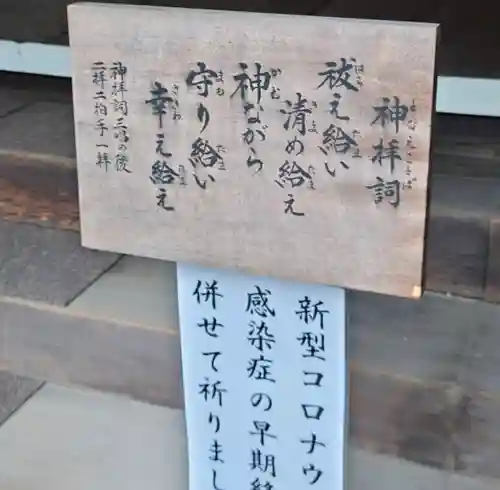 神拝詞
祓え給い
清め給え
神ながら
守り給い
幸え給え
神拝詞三唱の後
二拝二拍手一拝
新型コロナウ
感染症の早期終
併せて祈りまし